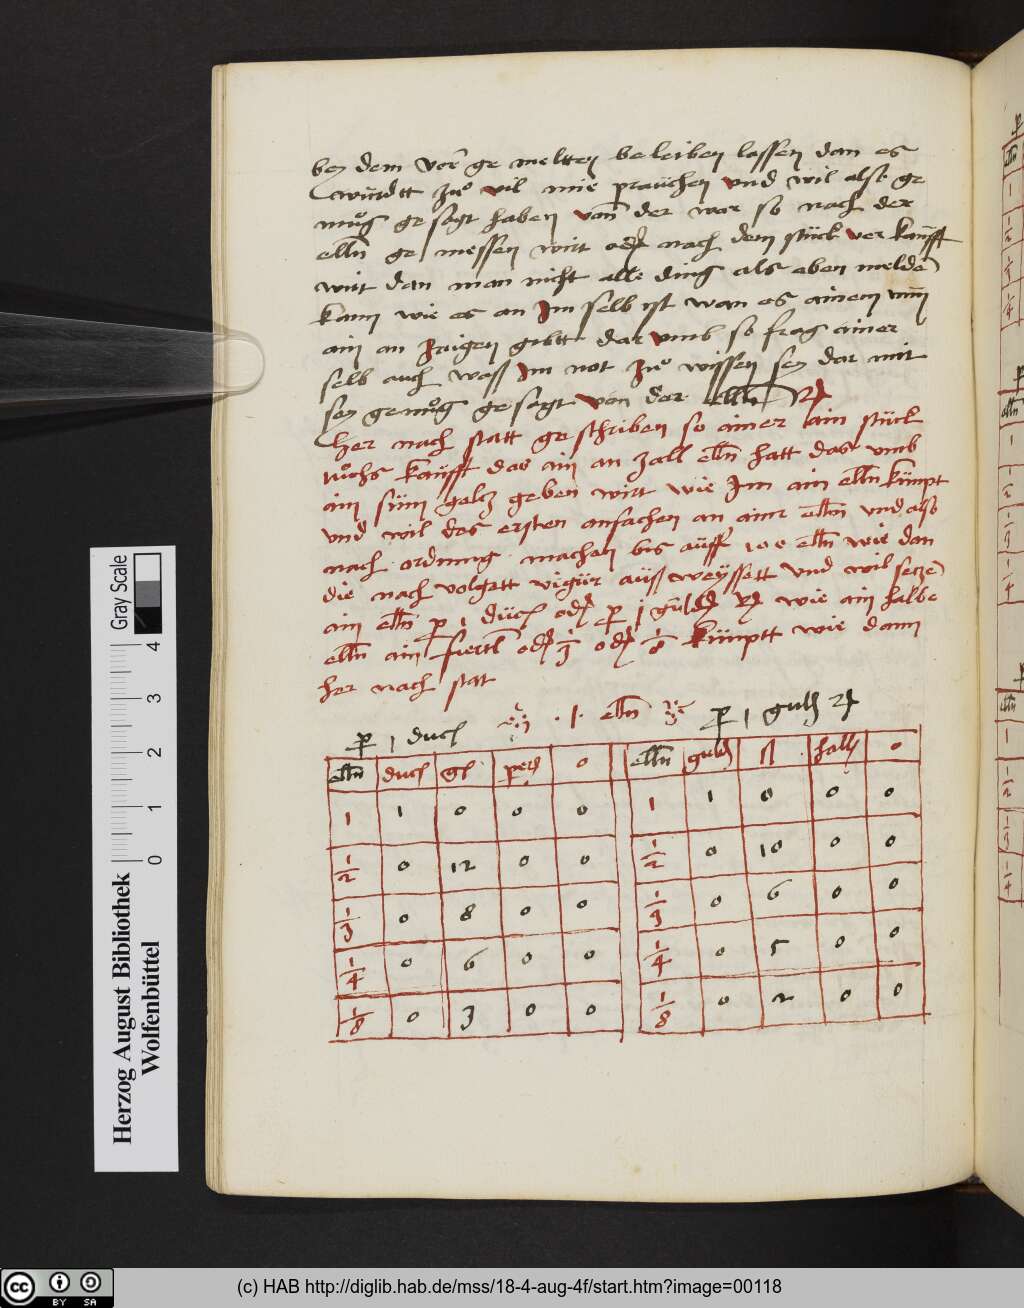 bey dem vor ge meltten beleiben lassen dan es
wurdtt zuͦ vil mie prauchen vnd wil also ge
nuͦg gesagt haben von der war so nach der
elln ge messen wirt oder nach dem stuck verkaufft
wirt dan man nicht alle ding als eben melden
kann wie es an Im selb ist wan es ainem nun
ain an zaigen gibtt dar vmb so frag ainer
selb auch wass Im not zuͦ wissen sey dar mit
sey genuͦg gesagt von der elln
Her nach statt geschriben so ainer ain stuck
tuͦchs kaufft das ain an zall elln hatt das vmb
ain sum geltz geben wirt wie Im ain elln kumpt
vnd wil des ersten anfachen an ainer elln vnd also
nach ordnung machen bis auff 100 elln wie dan
die nach volgett vigur auss weyssett vnd wil setzen
ain elln per 1 duc oder per 1 gulden wie ain halbe
elln ain fiertl oder 1/3 oder 1/8 kumptt wie dann
her nach stat
per 1 duc · 1 · elln per 1 guld
elln duc gl 0 elln guld ß hall 0
1 1 0 0 0 1 1 0 0 0
1/2 0 12 0 0 1/2 0 10 0 0
1/3 0 8 0 0 1/3 0 6 0 0
1/4 0 6 0 0 1/4 0 5 0 0
1/8 0 3 0 0 1/8 0 2 0 0
elln
1
1/2
1/3
1/4
elln
1
1/2
1/3
1/4
elln
1
1/2
1/3
1/4
Gray Scale
0 1 2 3 4
Herzog August Bibliothek
Wolfenbüttel
cc BY SA
(c) HAB http://diglib.hab.de/mss/18-4-aug-4f/start.htm?image=00118